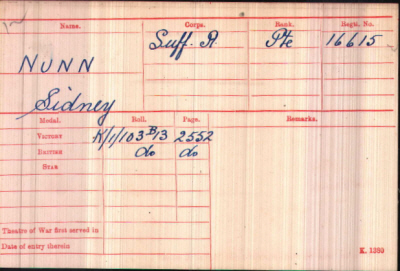 Name. Corps. Rank. Regtl. No.
Suff. R. Pte 16615
NUNN
Sidney
Medal. Roll. Page. Remarks.
VICTORY K/1/103 B13 2552
BRITISH do do
STAR
Theatre of War first served in
Date of entry therein
K. 1380